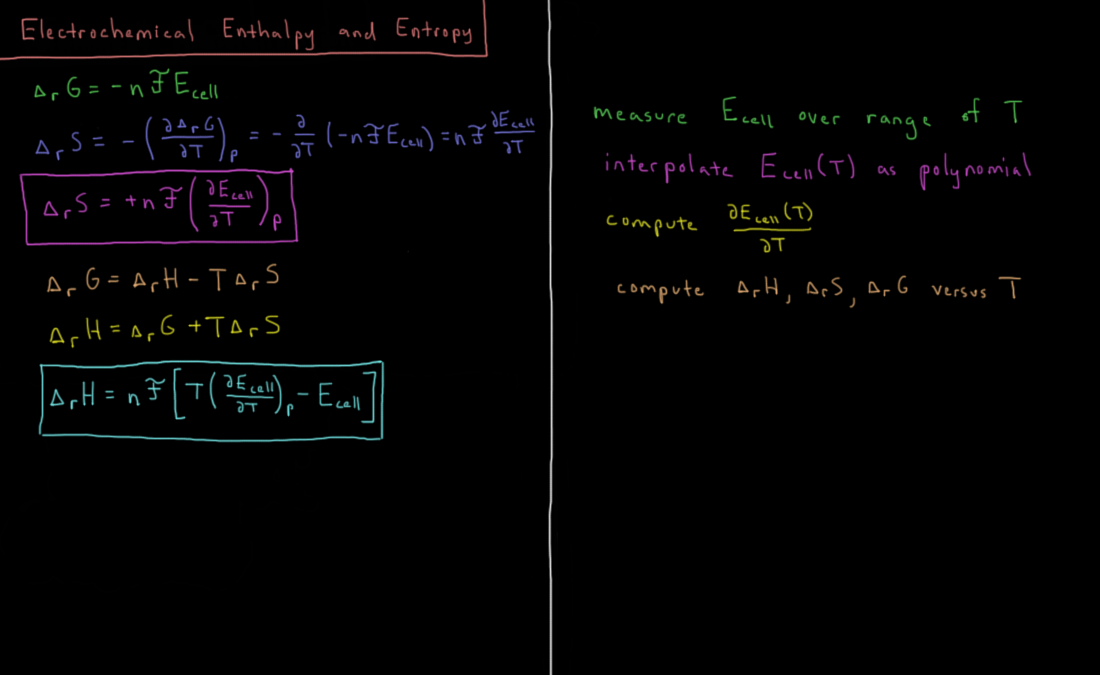 Electrochemical Enthalpy and Entropy
Δ_r G = -nℱE_cell
Δ_r S = -(∂Δ_r G/∂T)_p = -∂/∂T (-nℱE_cell) = nℱ ∂E_cell/∂T
Δ_r S = +nℱ(∂E_cell/∂T)_p
Δ_r G = Δ_r H - TΔ_r S
Δ_r H = Δ_r G + TΔ_r S
Δ_r H = nℱ[T(∂E_cell/∂T)_p - E_cell]
measure E_cell over range of T
interpolate E_cell(T) as polynomial
compute ∂E_cell(T)/∂T
compute Δ_r H, Δ_r S, Δ_r G versus T